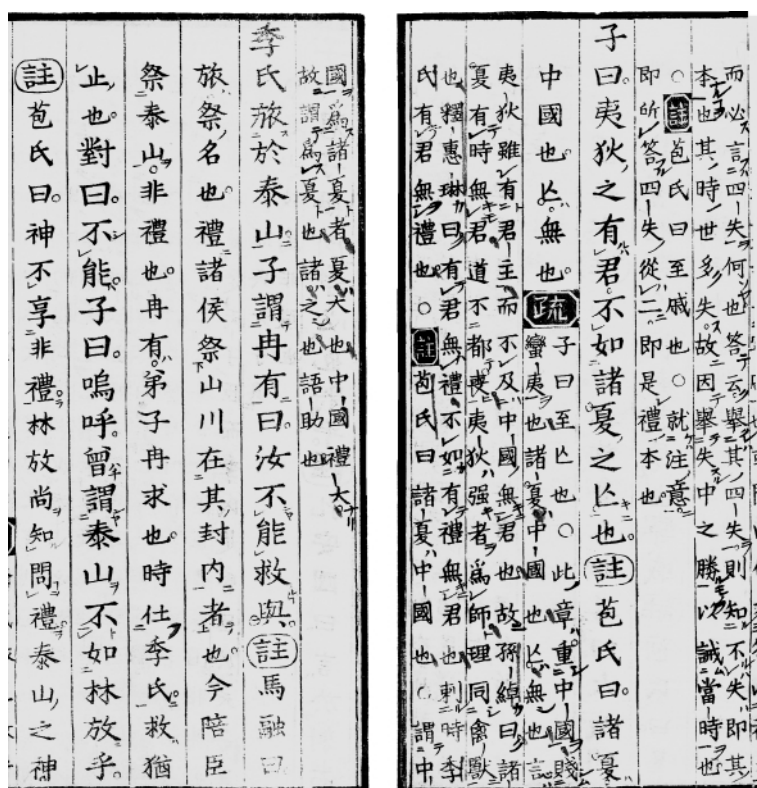 而必言四失何也答云舉其四失則知不失即其
本也其時世多失故因舉失中之勝以誡當時也
○註苞氏曰至戚也○就注意
即所答四失從二即是禮本也
子曰夷狄之有君不如諸夏之亾也註苞氏曰諸夏
中國也亾無也疏
子曰至亾也○此章重中國賤
蠻夷也諸夏中國也亾無也言
夷狄雖有君主而不及中國無君也故孫綽曰諸
夏有時無君道不都喪夷狄强者爲師理同禽獸
也釋惠琳曰有君無禮不如有禮無君也刺時季
氏有君無禮也○註苞氏曰諸夏中國也○謂中
國爲諸夏者夏大也中國禮大
故謂爲夏也諸之也語助也
季氏旅於泰山子謂冉有曰汝不能救與註馬融曰
旅祭名也禮諸侯祭山川在其封内者也今陪臣
祭泰山非禮也冉有弟子冉求也時仕季氏救猶
止也對曰不能子曰嗚呼曾謂泰山不如林放乎
註苞氏曰神不享非禮林放尚知問禮泰山之神